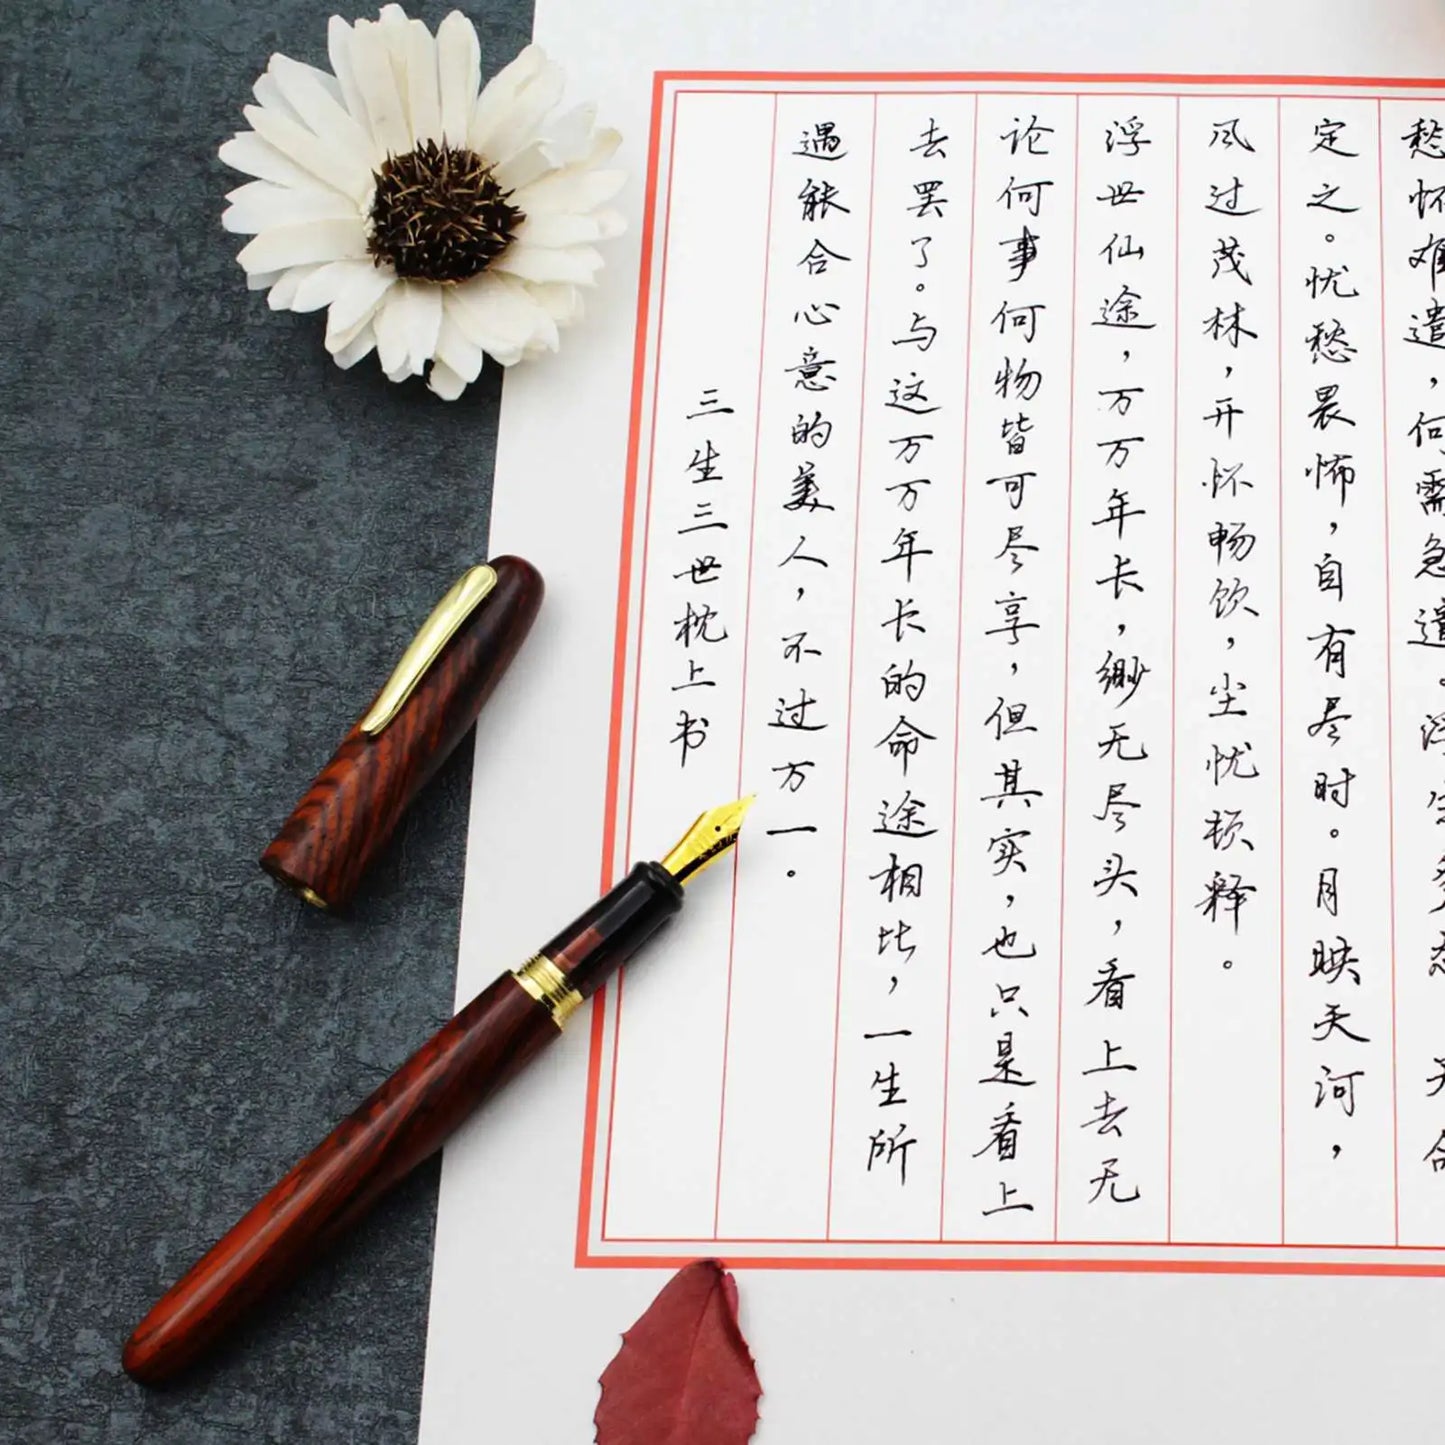 愁怀难遣，何需急遣。浮生多态 天命
定之。忧愁畏怖，自有尽时。月映天河，
风过茂林，开怀畅饮，尘忧顿释。
浮世仙途，万万年长，缈无尽头，看上去无
论何事何物皆可尽享，但其实，也只是看上
去罢了。与这万万年长的命途相比，一生所
遇能合心意的美人，不过万一。
三生三世枕上书